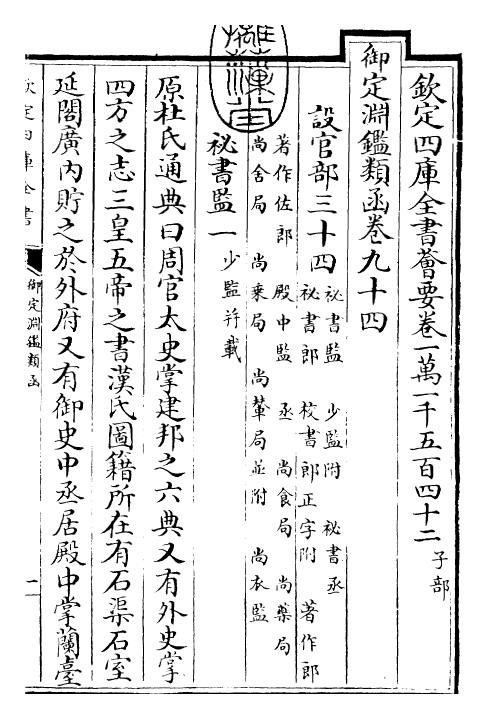 欽定四庫全書薈要卷一萬一千五百四十二 子部
御定淵鑑類函卷九十四
設官部三十四 祕書監 少監附 祕書丞
祕書郎 校書郎正字附 著作郎
著作佐郎 殿中監 丞 尚食局 尚藥局
尚舍局 尚乘局 尚輦局並附 尚衣監
祕書監一 少監并載
原杜氏通典曰周官太史掌建邦之六典又有外史掌
四方之志三皇五帝之書漢氏圖籍所在有石渠石室
延閣廣内貯之於外府又有御史中丞居殿中掌蘭臺
欽定四庫全書
御定淵鑑類函
一